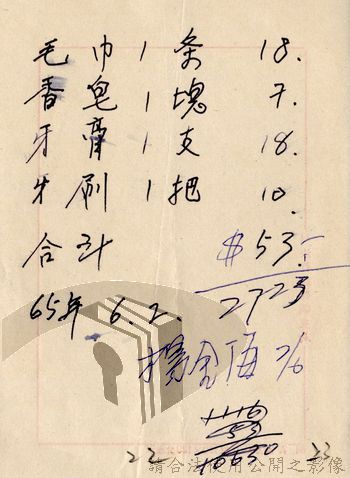 毛巾 1 条 18.
香皂 1 塊 7.
牙膏 1 支 18.
牙刷 1 把 10.
合计 $53.-
65年 6. 2. 2723
22 23
請合法使用公開之影像